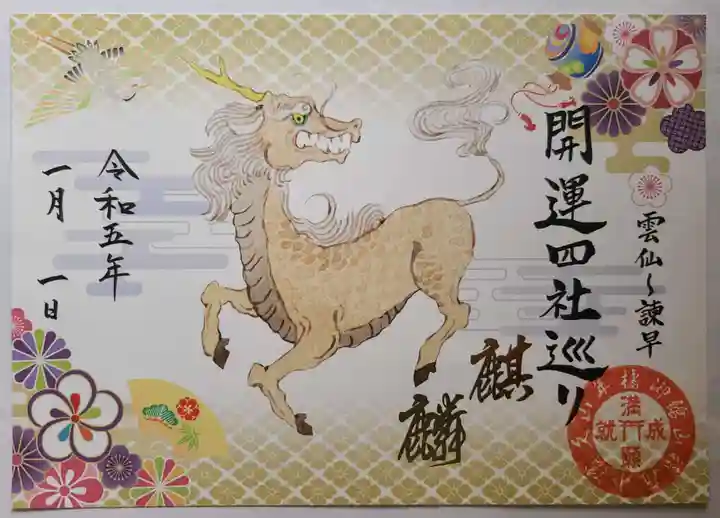 開運四社巡り
雲仙〜諫早
令和五年
一月一日
麒麟
満行
成就
願